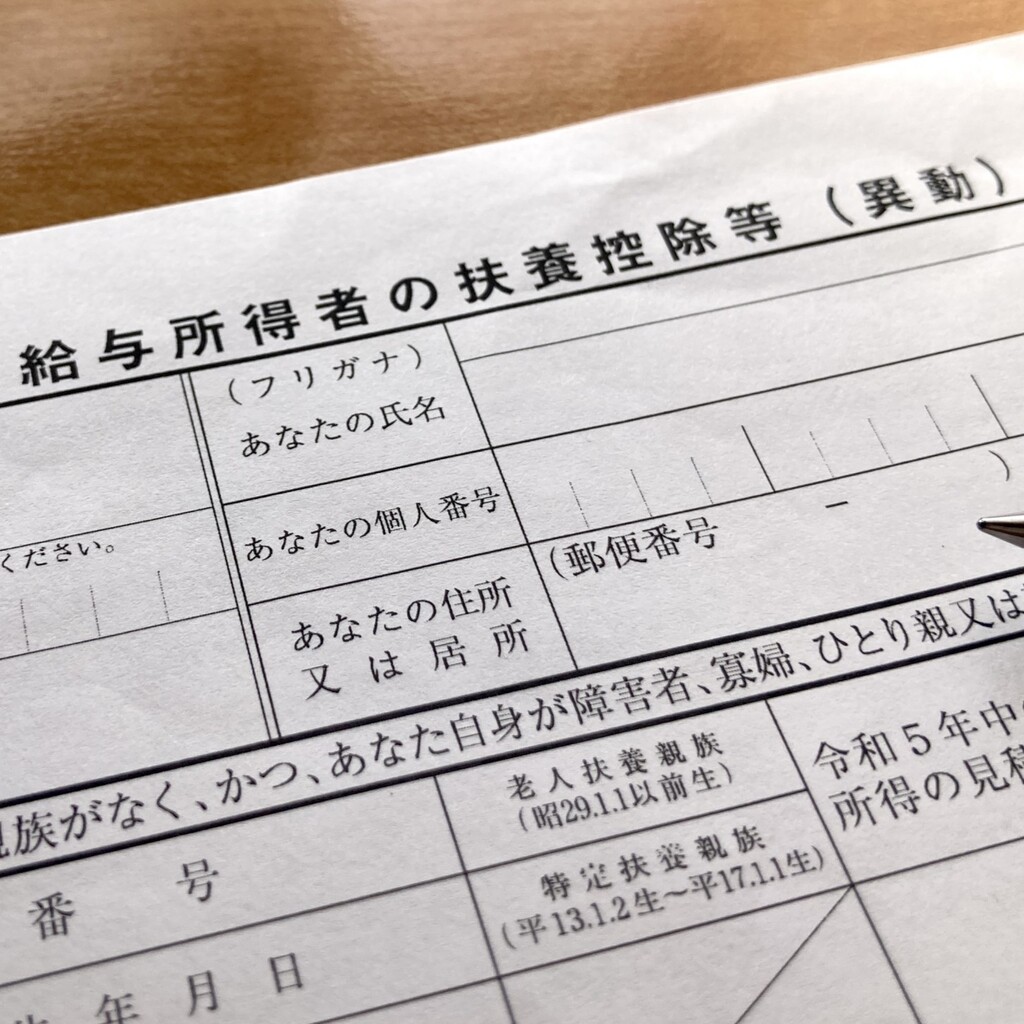 給与所得者の扶養控除等(異動)
(フリガナ)
あなたの氏名
ください。
あなたの個人番号
あなたの住所
又は居所
(郵便番号 － )
親族がなく、かつ、あなた自身が障害者、寡婦、ひとり親又は
番号
老人扶養親族
(昭29.1.1以前生)
令和5年中
所得の見積
特定扶養親族
(平13.1.2生～平17.1.1生)
年月日